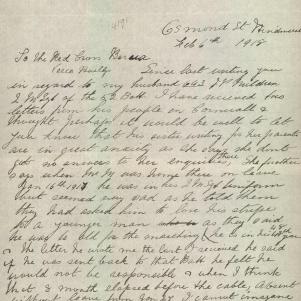 Esmond St
Feb 6th 1918
To The Red Cross
Since last writing you
in regard to my husband J V
of the Batt. I have received two
letters from his people in Cornwall &
thought perhaps it would be well to let
you know that his sister writing for her parents
are in great anxiety as she says she dont
get no answer to her enquiries the mother
says when Mr M was home there on leave
Jan 16th 1917 he was in his uniform
but seemed very sad as he told them
they had asked him to lose his stripe
for a younger man as they said
he was to old for the he is in his
year. The later he wrote me the last I received he said
if he was sent back to that Batt he felt he
would not be responsible & when I think
that a month elapsed before the cable, absent
without leave I cannot